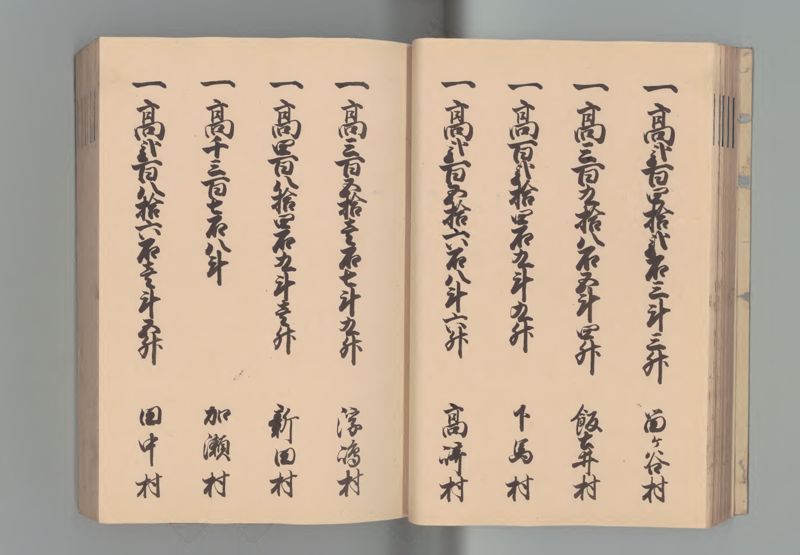 一高弐百四拾弐石三斗三升 留ケ谷村
一高三百九拾八石五斗四升 飯土井村
一高百弐拾四石九斗九升 下馬村
一高弐百五拾六石八斗六升 高崎村
一高三百五拾壱石七斗九升 浮嶋村
一高四百八拾四石九斗壱升 新田村
一高千三百七石八斗 加瀬村
一高弐百八拾六石壱斗五升 田中村